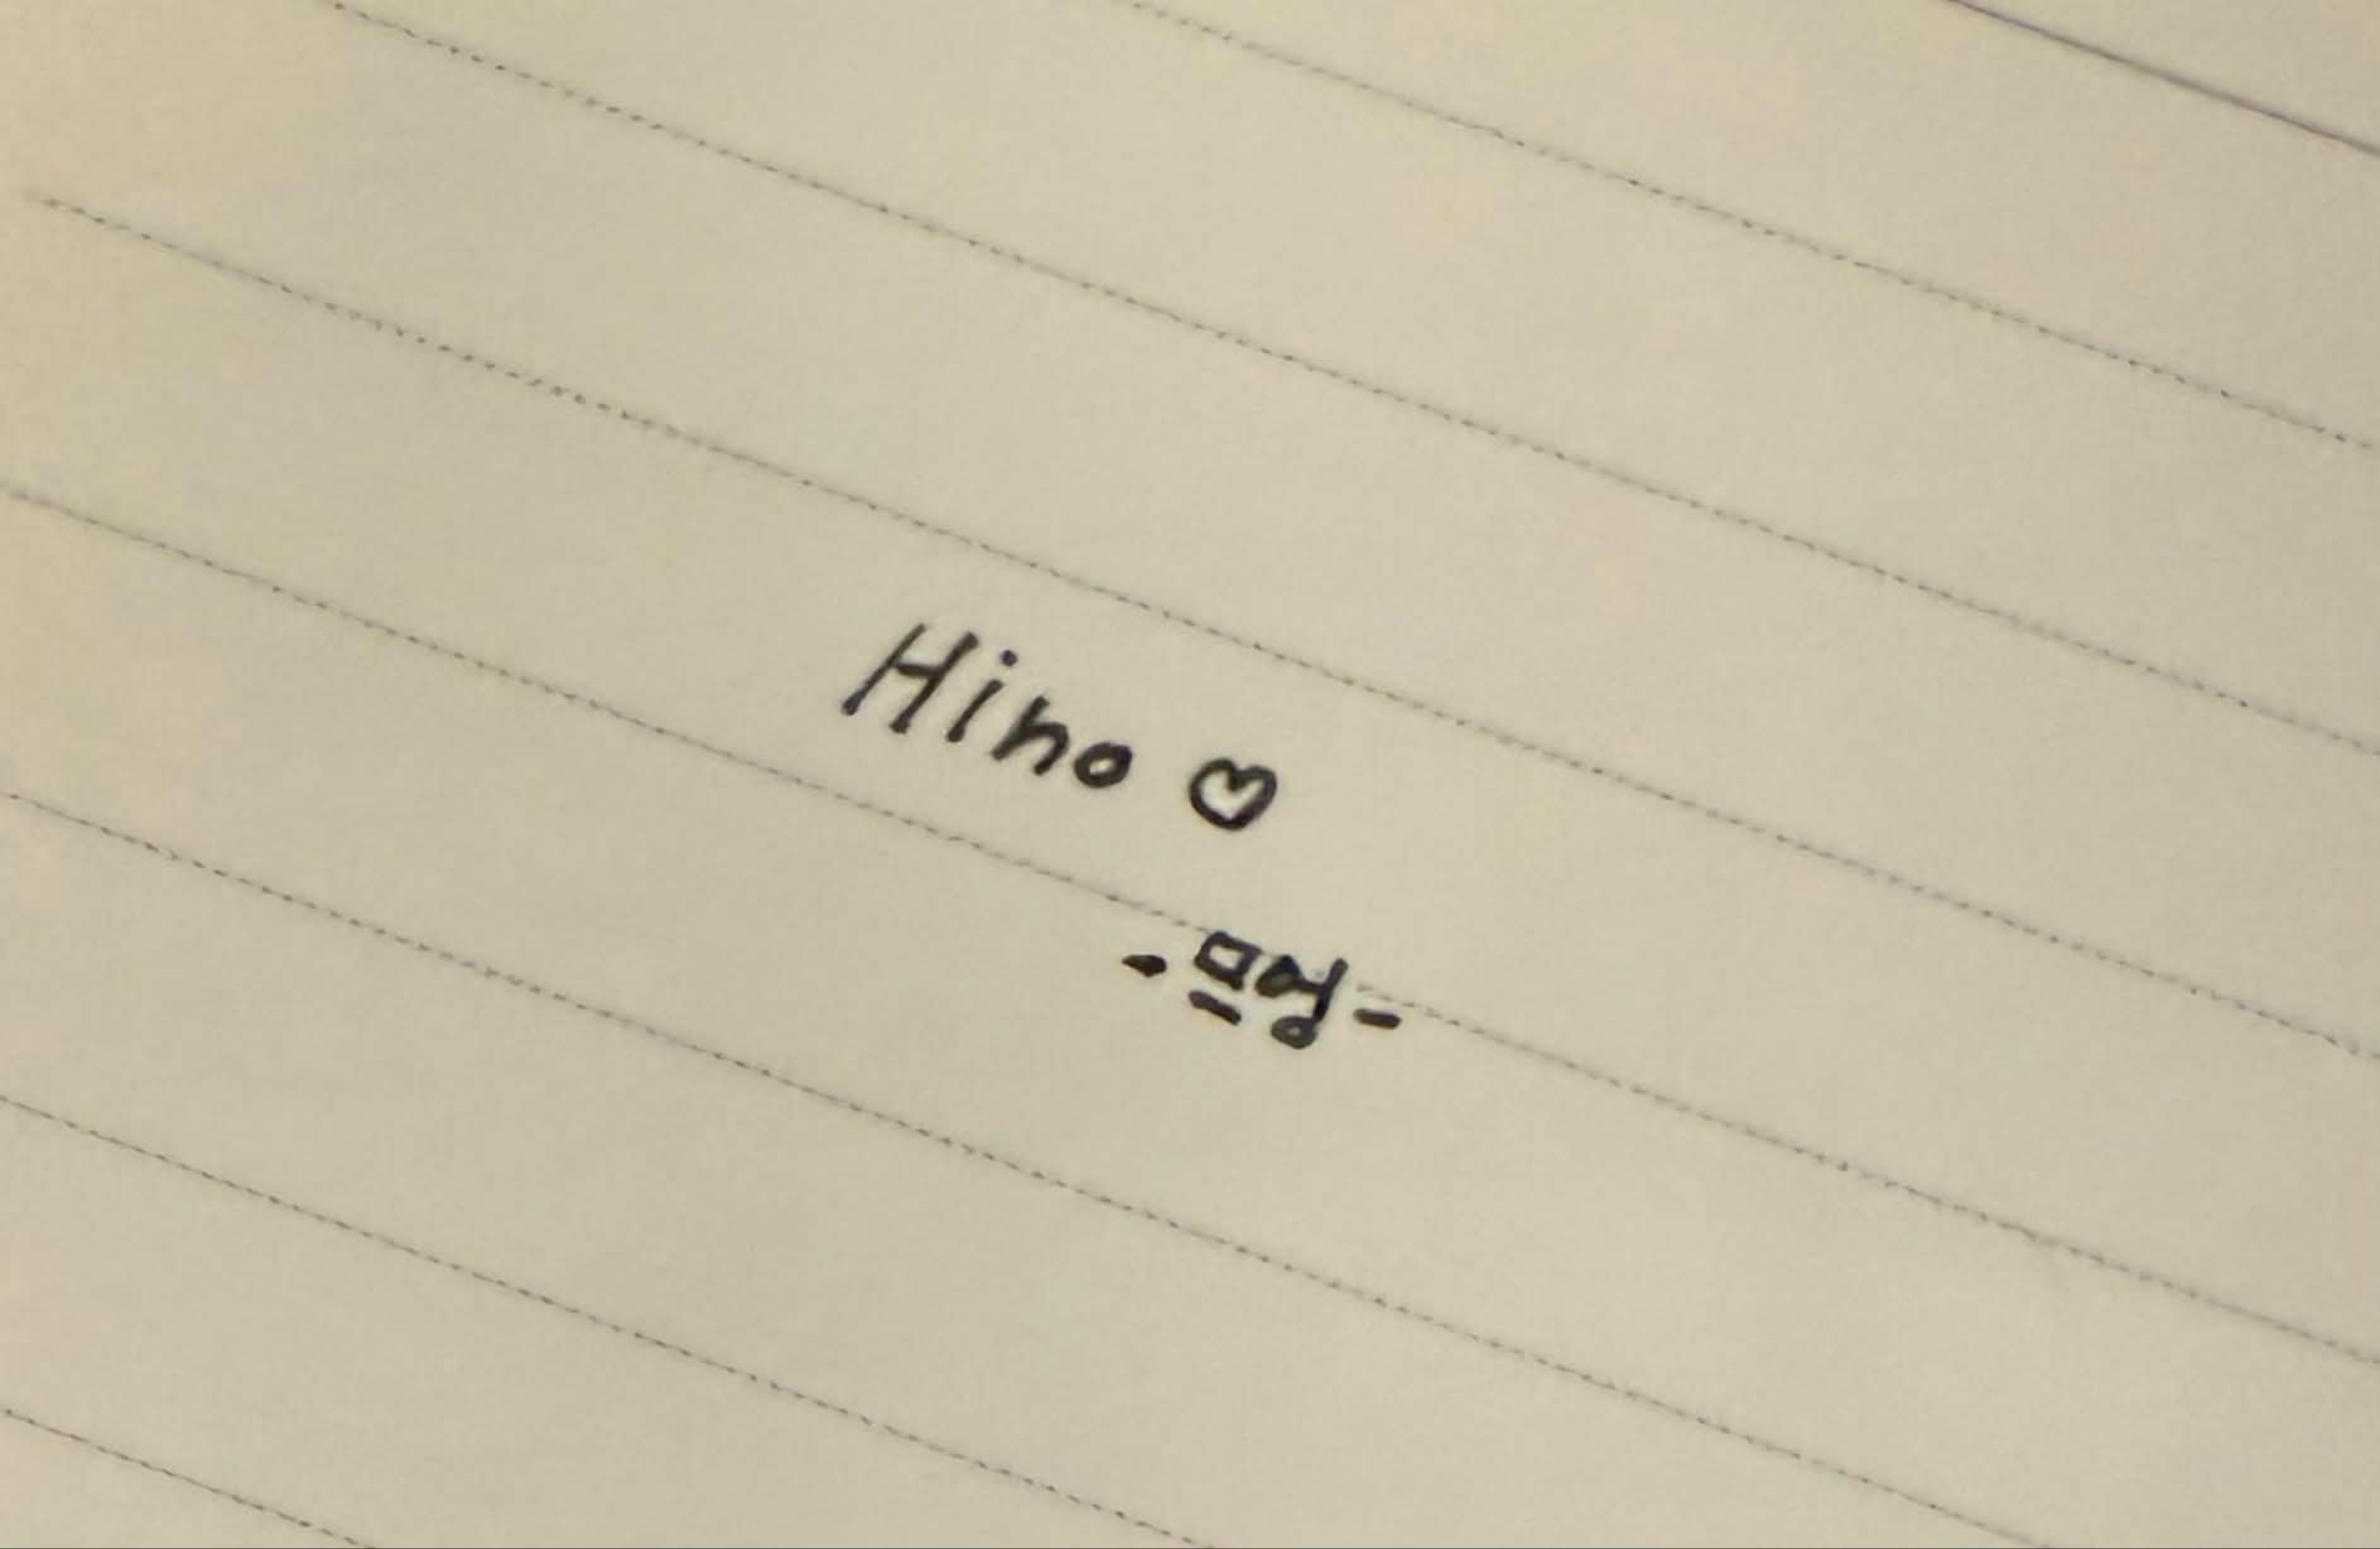 Hino ♡
-므엉-